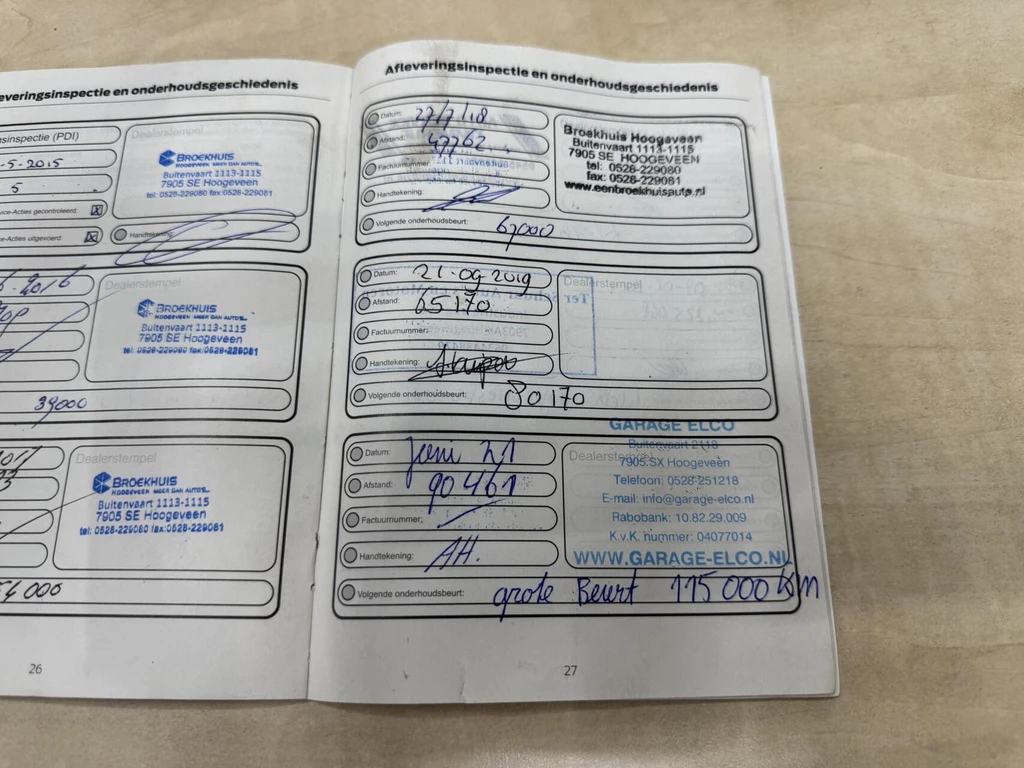 everingsinspectie en onderhoudsgeschiedenis
sinspectie (PDI)
-5-2015
5
ice-Acties gecontroleerd:
e-Acties uitgevoerd:
Dealerstempel
BROEKHUIS
HOOGEVEEN MEER DAN AUTO'S
Buitenvaart 1113-1115
7905 SE Hoogeveen
tel: 0528-229080 fax:0528-229081
Handtekening:
-2016
Dealerstempel
BROEKHUIS
HOOGEVEEN MEER DAN AUTO'S
Buitenvaart 1113-1115
7905 SE Hoogeveen
tel: 0528-229080 fax:0528-229081
39000
Dealerstempel
BROEKHUIS
HOOGEVEEN MEER DAN AUTO'S
Buitenvaart 1113-1115
7905 SE Hoogeveen
tel: 0528-229080 fax:0528-229081
54000
26
Afleveringsinspectie en onderhoudsgeschiedenis
Datum: 27/7/18
Afstand: 47762
Factuurnummer:
Handtekening:
Volgende onderhoudsbeurt:
Broekhuis Hoogeveen
Buitenvaart 1113-1115
7905 SE HOOGEVEEN
tel: 0528-229080
fax: 0528-229081
www.eenbroekhuisauto.nl
Datum: 21-09 2019
Afstand: 65170
Factuurnummer:
Handtekening:
Volgende onderhoudsbeurt: 80170
Dealerstempel
Datum: Juni 21
Afstand: 90461
Factuurnummer:
Handtekening: AH.
Volgende onderhoudsbeurt: grote Beurt 115000 km
Dealerstempel
GARAGE ELCO
Buitenvaart 2118
7905 SX Hoogeveen
Telefoon: 0528-251218
E-mail: info@garage-elco.nl
Rabobank: 10.82.29.009
K.v.K. nummer: 04077014
WWW.GARAGE-ELCO.NL
27